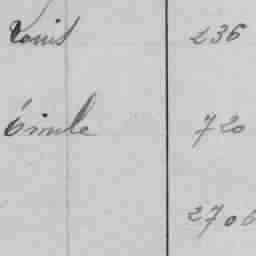 Louis 236
Emile 720
2706